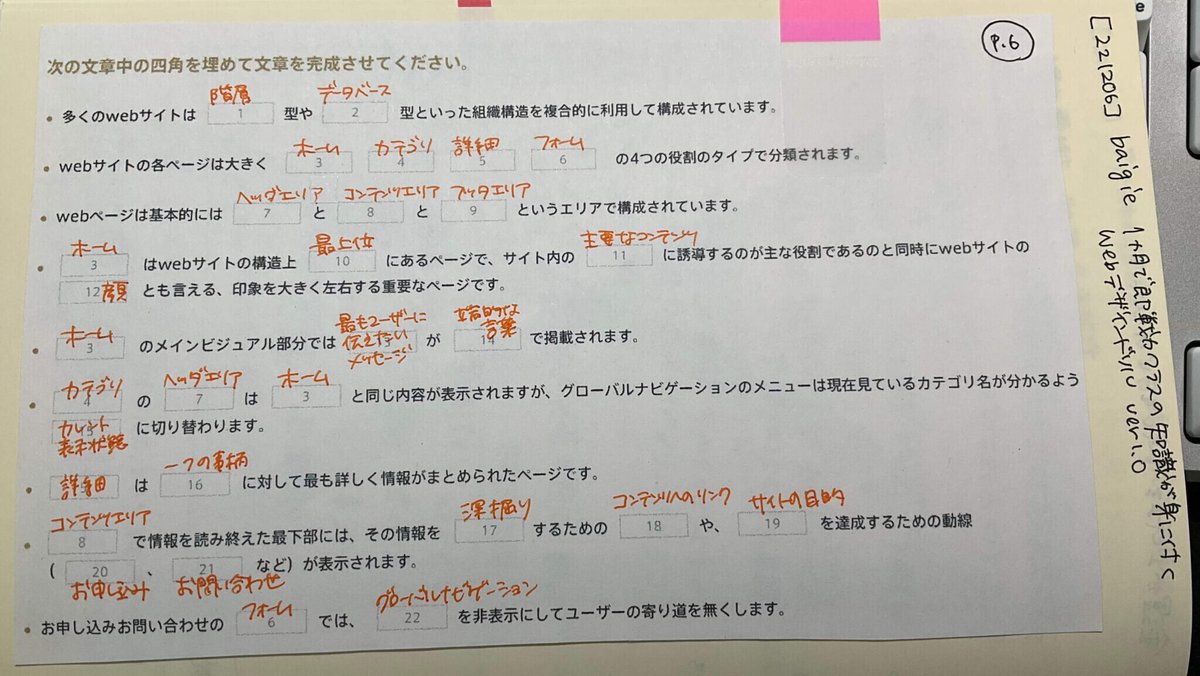 P.6
次の文章中の四角を埋めて文章を完成させてください。
階層 データベース
・多くのwebサイトは 1 型や 2 型といった組織構造を複合的に利用して構成されています。
ホーム カテゴリ 詳細 フォーム
・webサイトの各ページは大きく 3 4 5 6 の4つの役割のタイプで分類されます。
ヘッダエリア コンテンツエリア フッタエリア
・webページは基本的には 7 と 8 と 9 というエリアで構成されています。
ホーム 最上位 主要なコンテンツ
・ 3 はwebサイトの構造上 10 にあるページで、サイト内の 11 に誘導するのが主な役割であるのと同時にwebサイトの
12 顔 とも言える、印象を大きく左右する重要なページです。
ホーム 最もユーザーに伝えたいメッセージ 端的な言葉
・ 3 のメインビジュアル部分では が 14 で掲載されます。
カテゴリ ヘッダエリア ホーム
・ 4 の 7 は 3 と同じ内容が表示されますが、グローバルナビゲーションのメニューは現在見ているカテゴリ名が分かるよう
カレント表示状態 に切り替わります。
詳細 一つの事柄
・ は 16 に対して最も詳しく情報がまとめられたページです。
コンテンツエリア 深掘り コンテンツへのリンク サイトの目的
・ 8 で情報を読み終えた最下部には、その情報を 17 するための 18 や、 19 を達成するための動線
( 20 、 21 など）が表示されます。
お申し込み お問い合わせ
フォーム グローバルナビゲーション
・お申し込みお問い合わせの 6 では、 22 を非表示にしてユーザーの寄り道を無くします。
[221206] baigie 1ヶ月で即戦力クラスの知識が身に付く
Webデザインドリル ver1.0